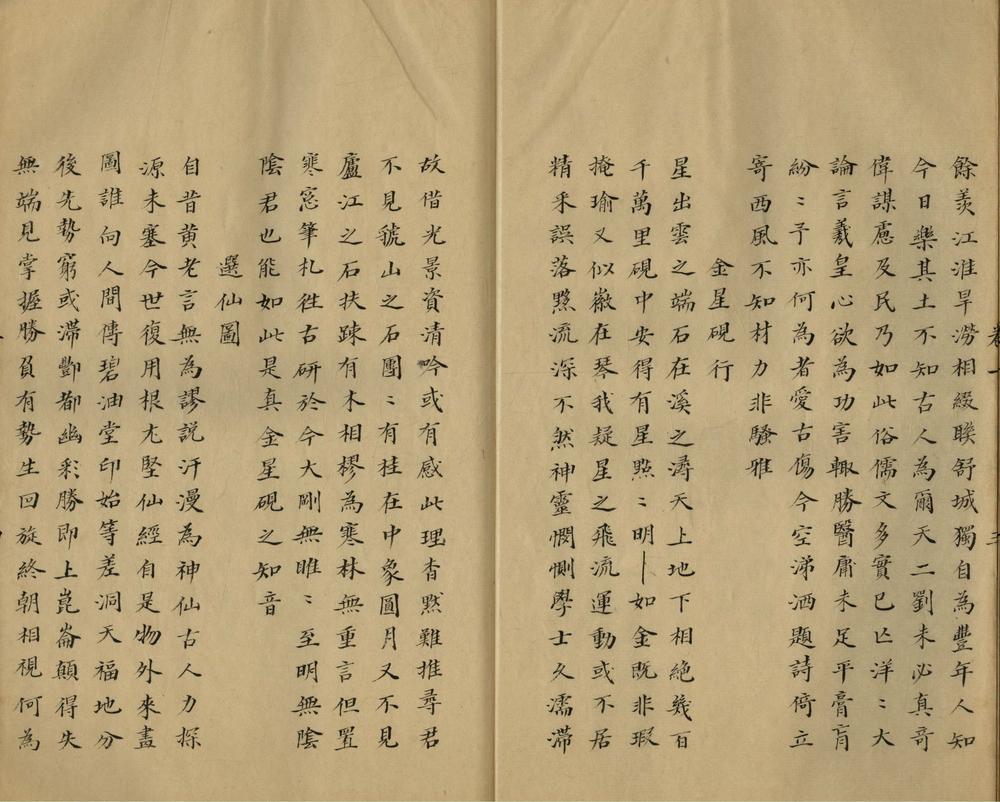 餘羨江淮旱澇相綴聯舒城獨自為豐年人知
今日樂其土不知古人為爾天二劉未必真奇
偉謀慮及民乃如此俗儒文多實已亡洋〻大
論言羲皇心欲為功害輒勝醫庸未足平膏肓
紛〻予亦何為者愛古傷今空涕洒題詩倚立
寄西風不知材力非騷雅
金星硯行
星出雲之端石在溪之潯天上地下相絕幾百
千萬里硯中安得有星點〻明｜如金既非瑕
掩瑜又似徽在琴我疑星之飛流運動或不居
精釆誤落黙流深不然神靈憫惻學士久濡滯
故借光景資清吟或有感此理杳黙難推尋君
不見虢山之石團〻有桂在中象圓月又不見
廬江之石扶踈有木相樛為寒林無重言但置
寒窓筆札徃古研於今大剛無睢〻至明無陰
陰君也能如此是真金星硯之知音
選仙圖
自昔黄老言無為謬說汗漫為神仙古人力探
源未塞今世復用根尤堅仙經自是物外來盡
圖誰向人間傳碧油堂印始等差洞天福地分
後先勢窮或滯酆都幽彩勝即上崑崙顛得失
無端見掌握勝負有勢生回旋終朝相視何為
卷一